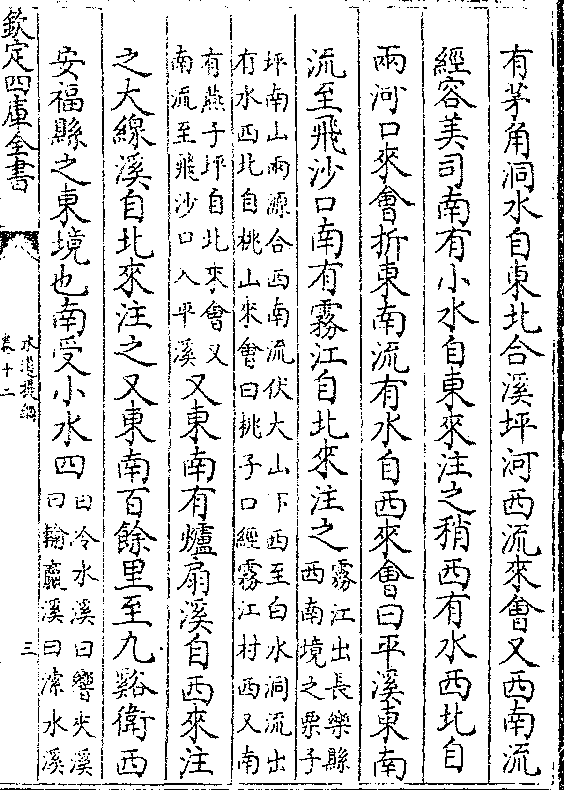 有茅角洞水自東北合溪坪河西流來會又西南流
經容美司南有小水自東來注之稍西有水西北自
兩河口來會折東南流有水自西來會曰平溪東南
流至飛沙口南有霧江自北來注之霧江出長樂縣
西南境之栗子
坪南山兩源合西南流伏大山下西至白水洞流出
有水西北自桃山來會曰桃子口經霧江村西又南
有燕子坪自北來會又
南流至飛沙口入平溪又東南有爐扇溪自西來注
之大線溪自北來注之又東南百餘里至九谿衛西
安福縣之東境也南受小水四曰冷水溪曰響夾溪
曰輪贏溪曰溹水溪
欽定四庫全書
水道提綱
卷十二
三